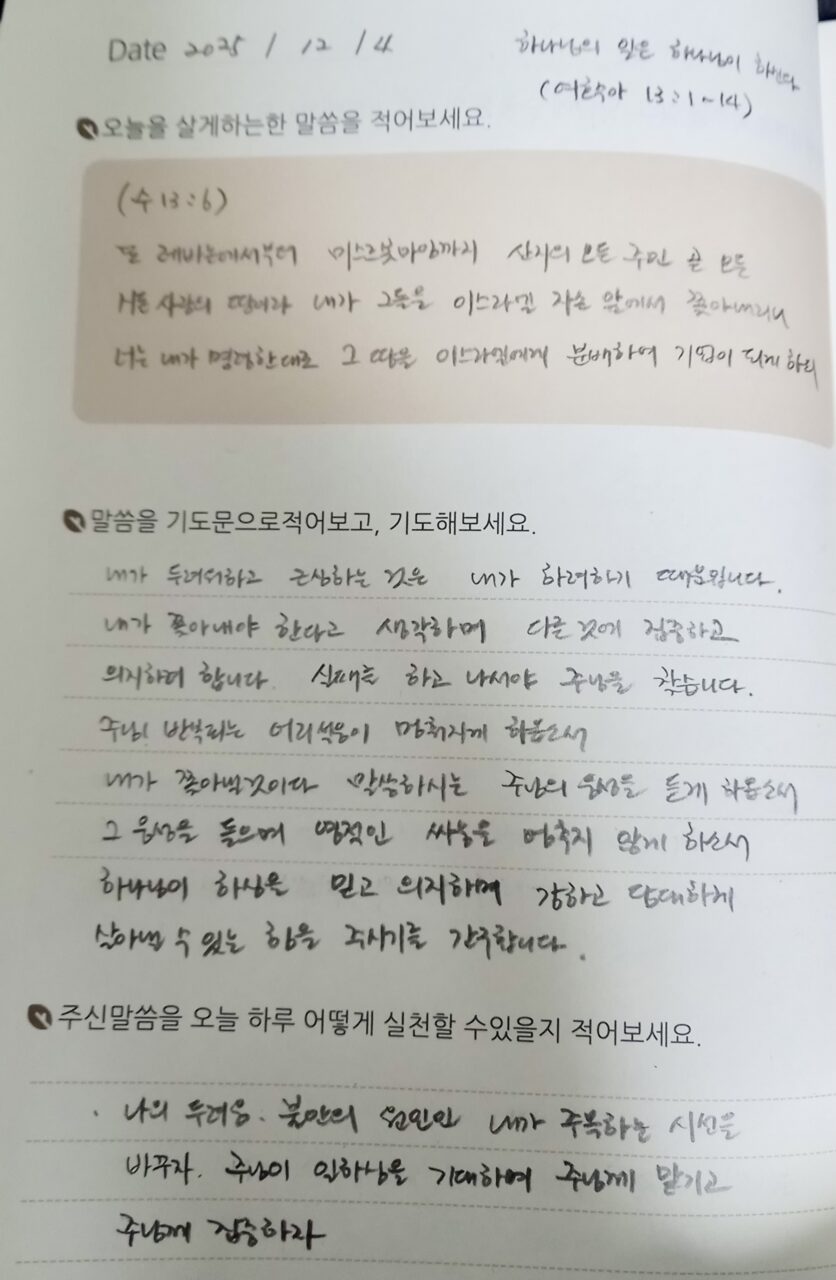 Date 2025 / 12 / 4
하나님의 일은 하나님이 하신다
(여호수아 13:1~14)
오늘을 살게하는한 말씀을 적어보세요.
(수 13:6)
또 레바논에서부터 미스르봇마임까지 산지의 모든 주민 곧 모든
시돈 사람의 땅이라 내가 그들을 이스라엘 자손 앞에서 쫓아내리니
너는 내가 명령한대로 그 땅을 이스라엘에게 분배하여 기업이 되게 하되
말씀을 기도문으로적어보고, 기도해보세요.
내가 두려워하고 근심하는 것은 내가 하려하기 때문입니다.
내가 쫓아내야 한다고 생각하며 다른 것에 집중하고
의지하려 합니다. 실패를 하고 나서야 주님을 찾습니다.
주님! 반복되는 어리석음이 멈춰지게 하옵소서
내가 쫓아낼것이다 말씀하시는 주님의 음성을 듣게 하옵소서
그 음성을 들으며 영적인 싸움을 멈추지 않게 하소서
하나님이 하심을 믿고 의지하며 강하고 담대하게
살아낼 수 있는 힘을 주시기를 간구합니다.
주신말씀을 오늘 하루 어떻게 실천할 수있을지 적어보세요.
· 나의 두려움. 불안의 원인인 내가 주목하는 시선을
바꾸자. 주님이 일하심을 기대하며 주님께 맡기고
주님께 집중하자